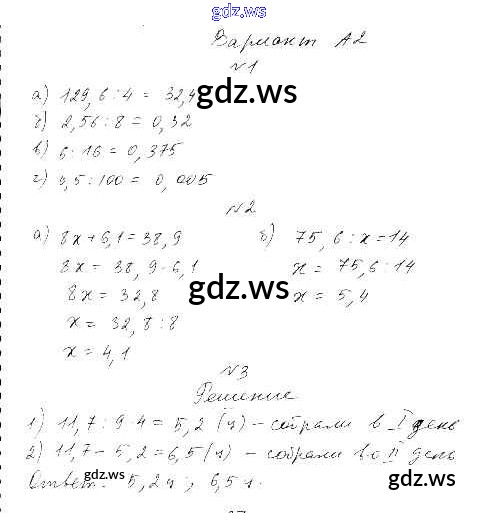 gdz.ws
Вариант А2
№1
а) 129,6 : 4 = 32,4
gdz.ws
б) 2,56 : 8 = 0,32
в) 6 : 16 = 0,375
г) 0,5 : 100 = 0,005
№2
а) 8x + 6,1 = 38,9
б) 75,6 : x = 14
8x = 38,9 - 6,1
x = 75,6 : 14
8x = 32,8
gdz.ws
x = 5,4
x = 32,8 : 8
x = 4,1
№3
Решение
1) 11,7 : 9 · 4 = 5,2 (ч) – собрали в I день
2) 11,7 – 5,2 = 6,5 (ч) – собрали во II день
Ответ: 5,2 ч ; 6,5 ч.
gdz.ws
gdz.ws